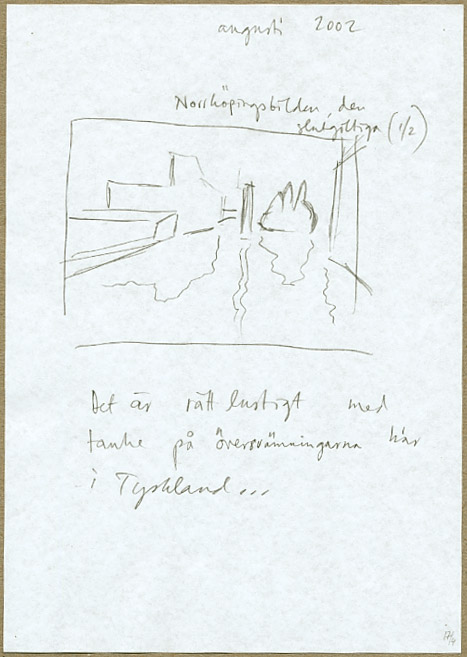 augusti 2002
Norrköpingsbilden, den
slutgiltiga (1/2)
Det är rätt lustigt med
tanke på översvämningarna här
i Tyskland...